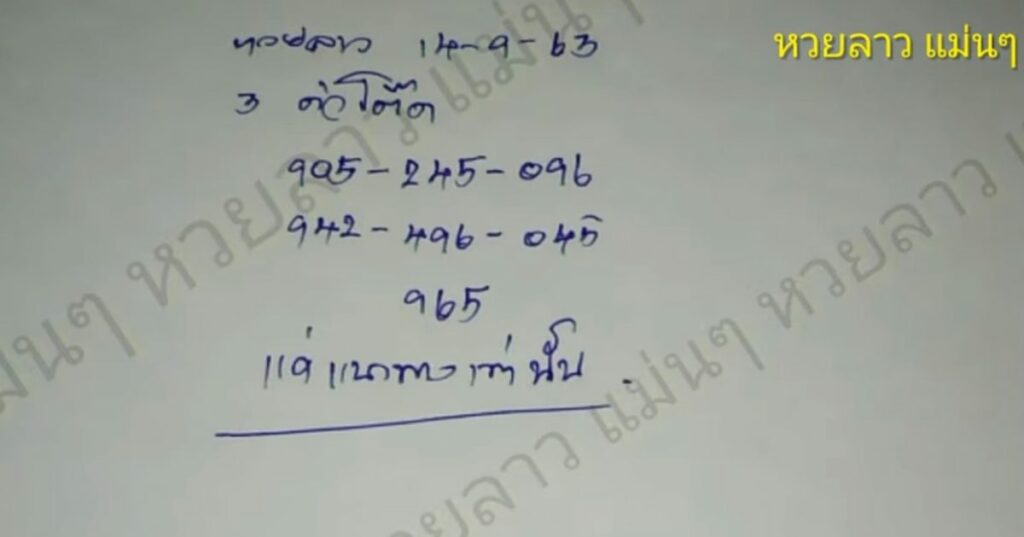 หวยลาว แม่นๆ
หวยลาว 14-9-63
3 ตัวโต๊ด
905-245-096
942-496-045
965
แค่แนวทางเท่านั้น
หวยลาว แม่นๆ หวยลาว แม่นๆ
หวยลาว แม่นๆ หวยลาว